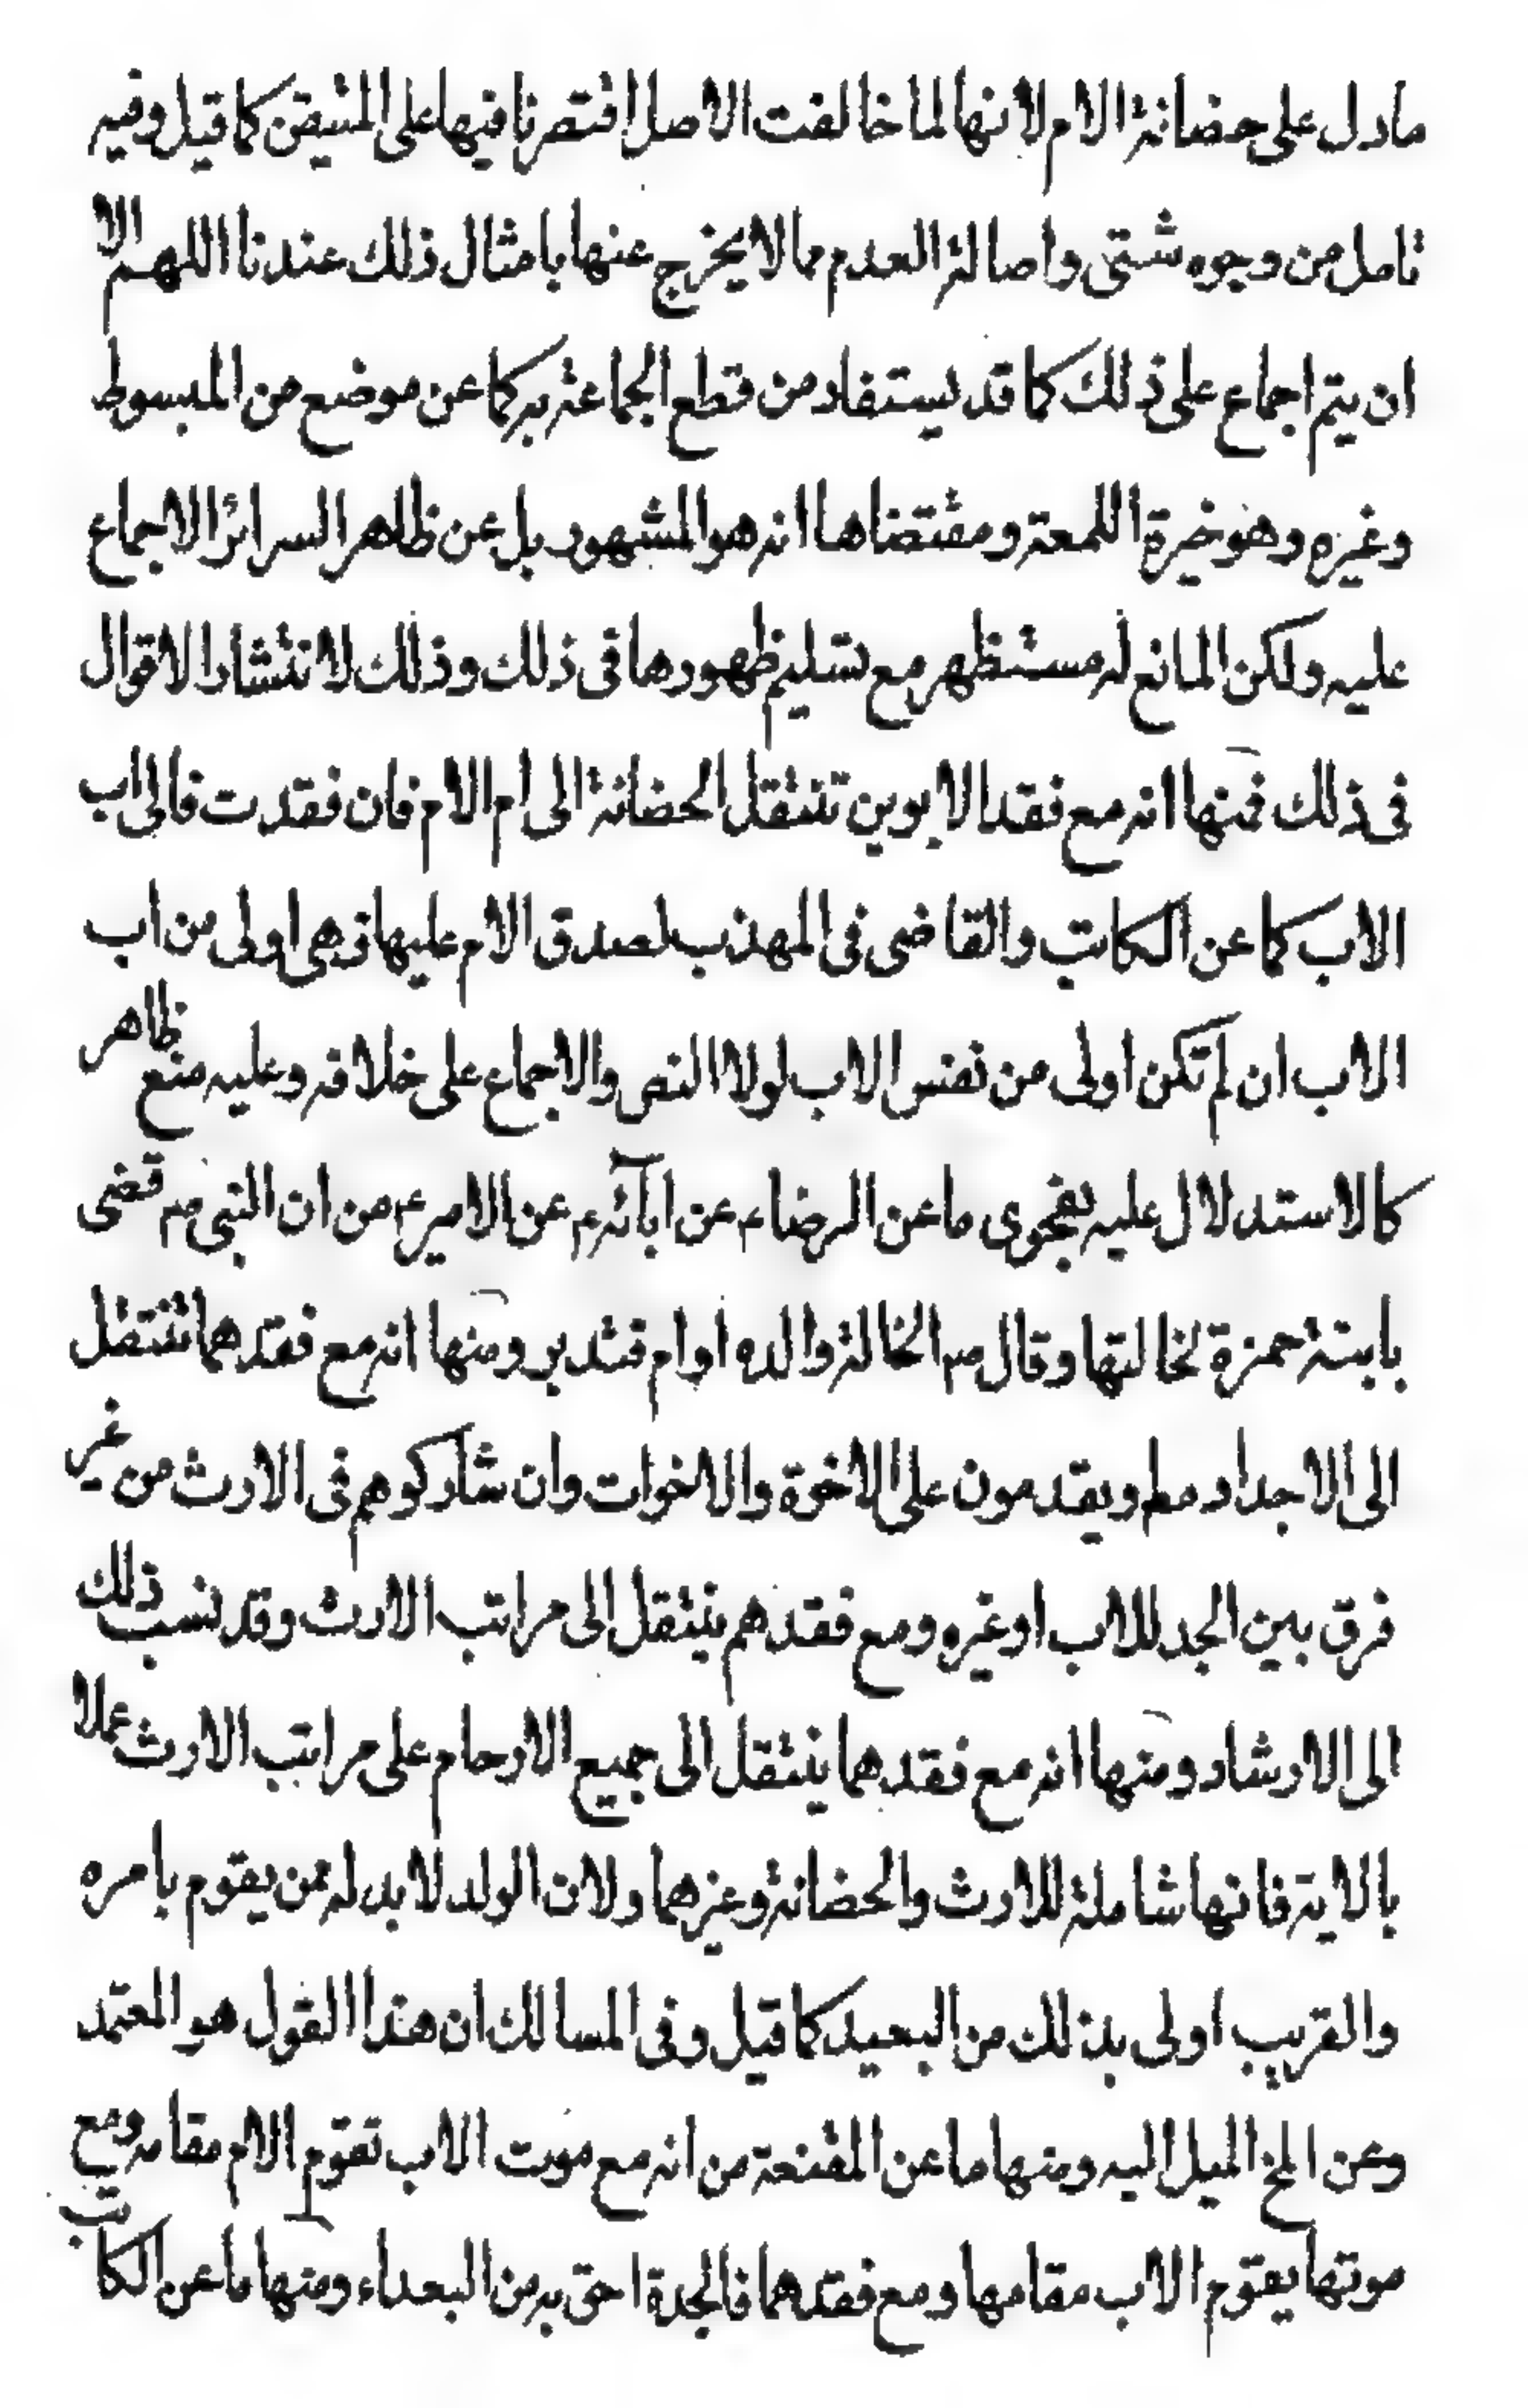 مادل على حضانة الام لانها لما خالفت الاصل اقتصرنا فيها على المتيقن كما قيل وفيه
تامل من وجوه شتى واصالة العدم مما لا يخرج عنها بامثال ذلك عندنا اللهم الا
ان يتم اجماع على ذلك كما قد يستفاد من قطع الجماعة به كما عن موضع من المبسوط
وغيره وهو خيرة اللمعة ومقتضاها انه هو المشهور بل عن ظاهر السرائر الاجماع
عليه ولكن المانع له مستظهر مع تسليم ظهورها فى ذلك وذلك لانتشار الاقوال
فى ذلك فمنها انه مع فقد الابوين تنتقل الحضانة الى ام الام فان فقدت فالى اب
الاب كما عن الكاتب والقاضى فى المهذب لصدق الام عليها فهى اولى من اب
الاب ان لم تكن اولى من نفس الاب لولا النص والاجماع على خلافه وعليه منع ظاهر
كالاستدلال عليه بفحوى ما عن الرضاء ع عن ابآئه ع عن الامير ع من ان النبى ص قضى
بابنة حمزة لخالتها وقال ص الخالة والده او ام فتدبر ومنها انه مع فقدهما تنتقل
الى الاجداد مط ويقدمون على الاخوة والاخوات وان شاركوهم فى الارث من غير
فرق بين الجد للاب او غيره ومع فقدهم ينتقل الى مراتب الارث وقد نسب ذلك
الى الارشاد ومنها انه مع فقدهما ينتقل الى جميع الارحام على مراتب الارث عملا
بالاية فانها شاملة للارث والحضانة وغيرهما ولان الولد لا بد له ممن يقوم بامره
والقريب اولى بذلك من البعيد كما قيل وفى المسالك ان هذا القول هو المعتمد
وعن الخ الميل اليه ومنها ما عن المقنعة من انه مع موت الاب تقوم الام مقامه ومع
موتها يقوم الاب مقامها ومع فقدهما فالجدة احق به من البعداء ومنها ما عن الكاتب